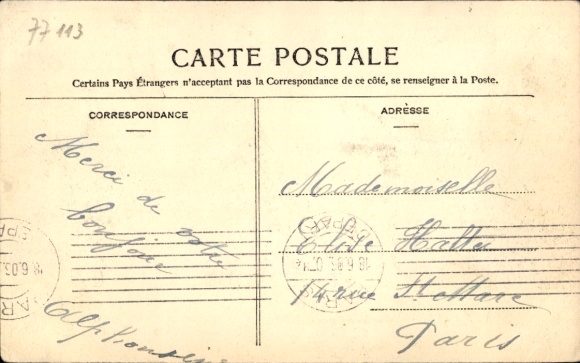 77 113
CARTE POSTALE
Certains Pays Étrangers n'acceptent pas la Correspondance de ce côté, se renseigner à la Poste.
CORRESPONDANCE
Merci de votre
bonjour
Alphonsine
ADRÈSSE
Mademoiselle
Elise Halter
14 rue St Marc
Paris